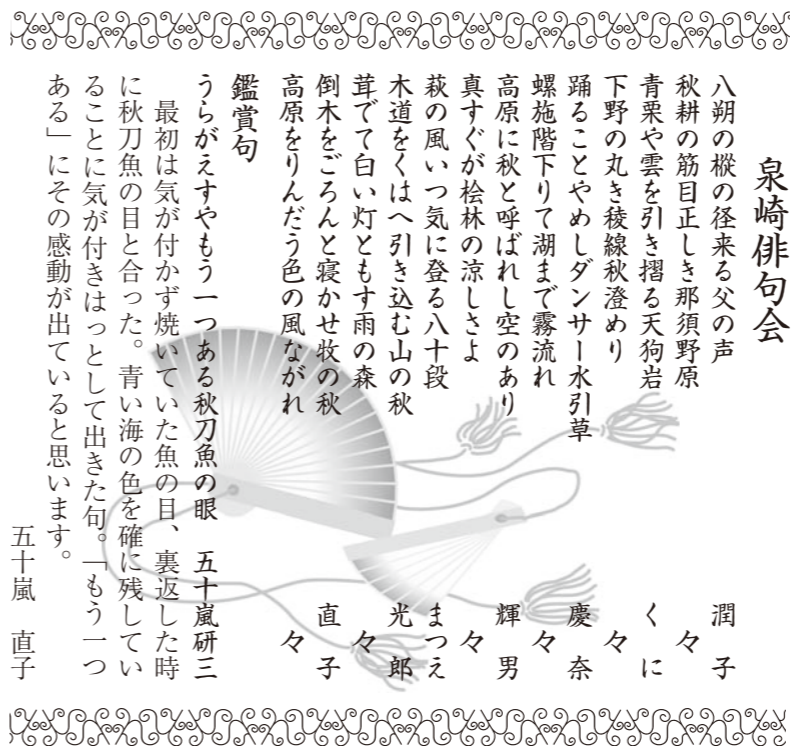 泉崎俳句会
八朔の樅の径来る父の声　潤子
秋耕の筋目正しき那須野原　々
青栗や雲を引き摺る天狗岩　くに
下野の丸き稜線秋澄めり　々
踊ることやめしダンサー水引草　慶奈
螺施階下りて湖まで霧流れ　々
高原に秋と呼ばれし空のあり　輝男
真すぐが桧林の涼しさよ　々
萩の風いつ気に登る八十段　まつえ
木道をくはへ引き込む山の秋　光郎
茸でて白い灯ともす雨の森　々
倒木をごろんと寝かせ牧の秋　直子
高原をりんだう色の風ながれ　々
鑑賞句
うらがえすやもう一つある秋刀魚の眼　五十嵐研三
最初は気が付かず焼いていた魚の目、裏返した時
に秋刀魚の目と合った。青い海の色を確に残してい
ることに気が付きはっとして出きた句。「もう一つ
ある」にその感動が出ていると思います。
五十嵐　直子